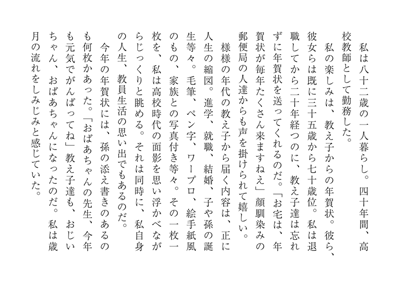 私は八十二歳の一人暮らし。四十年間、高
校教師として勤務した。
私の楽しみは、教え子からの年賀状。彼ら、
彼女らは既に三十五歳から七十歳位。私は退
職してから二十年経つのに、教え子達は忘れ
ずに年賀状を送ってくれるのだ。「お宅は、年
賀状が毎年たくさん来ますねえ」顔馴染みの
郵便局の人達からも声を掛けられて嬉しい。
様様の年代の教え子から届く内容は、正に
人生の縮図。進学、就職、結婚、子や孫の誕
生等々。毛筆、ペン字、ワープロ、絵手紙風
のもの、家族との写真付き等々。その一枚一
枚を、私は高校時代の面影を思い浮かべなが
らじっくりと眺める。それは同時に、私自身
の人生、教員生活の思い出でもあるのだ。
今年の年賀状には、孫の添え書きのあるの
も何枚かあった。「おばあちゃんの先生、今年
も元気でがんばってね」教え子達も、おじい
ちゃん、おばあちゃんになったのだ。私は歳
月の流れをしみじみと感じていた。